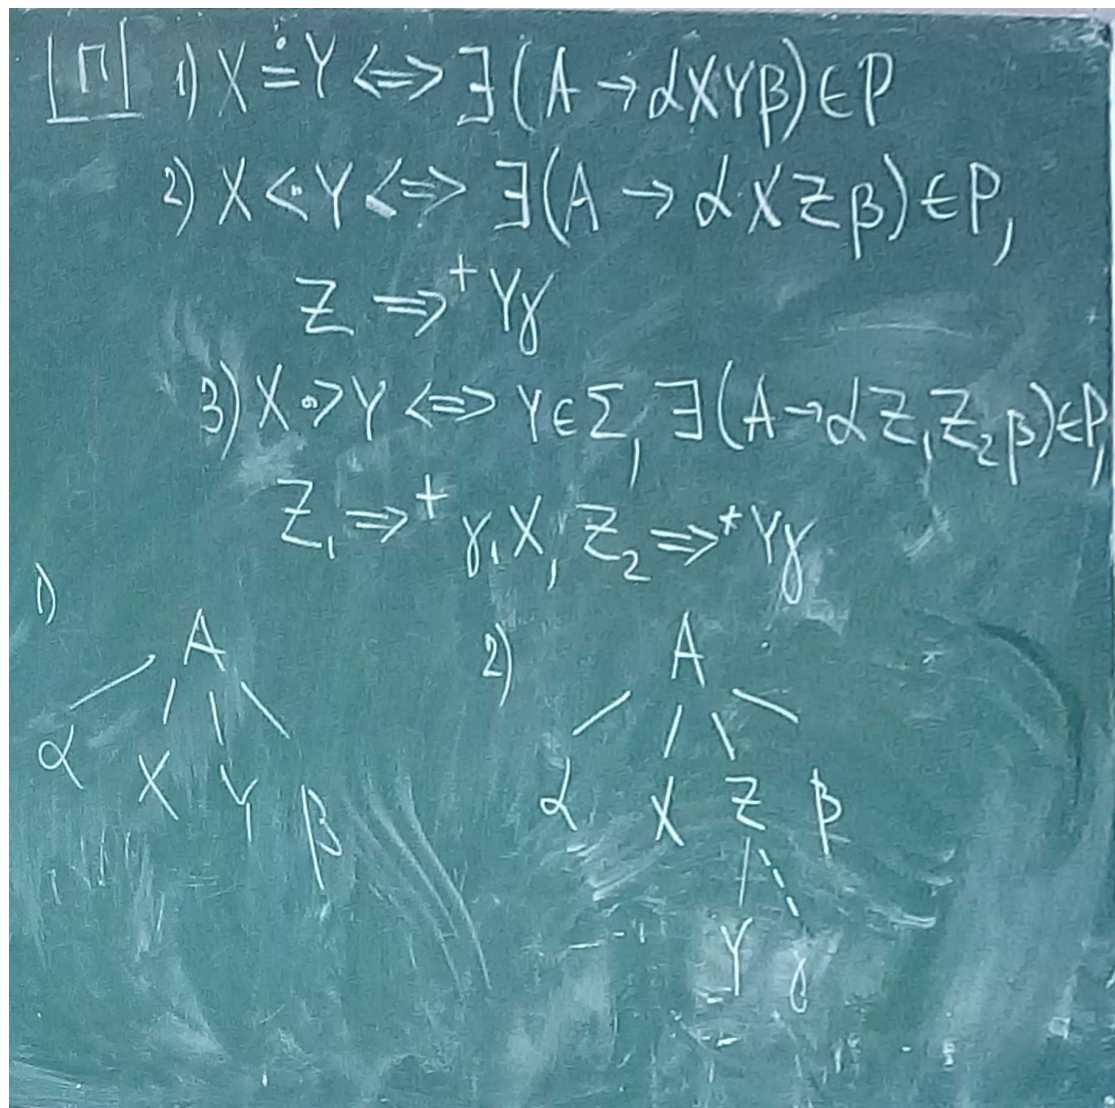 П 1) X ≐ Y ⇔ ∃(A → αXYβ) ∈ P
2) X ⋖ Y ⇔ ∃(A → αXZβ) ∈ P,
Z ⇒⁺ Yγ
3) X ⋗ Y ⇔ Y ∈ Σ, ∃(A → αZ₁Z₂β) ∈ P,
Z₁ ⇒⁺ γ₁X, Z₂ ⇒* Yγ
1)
A
α X Y β
2)
A
α X Z β
Y γ